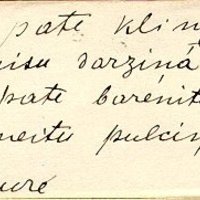 pate klin
nisu darziná
pate barénit
neitu pulciņ
uré